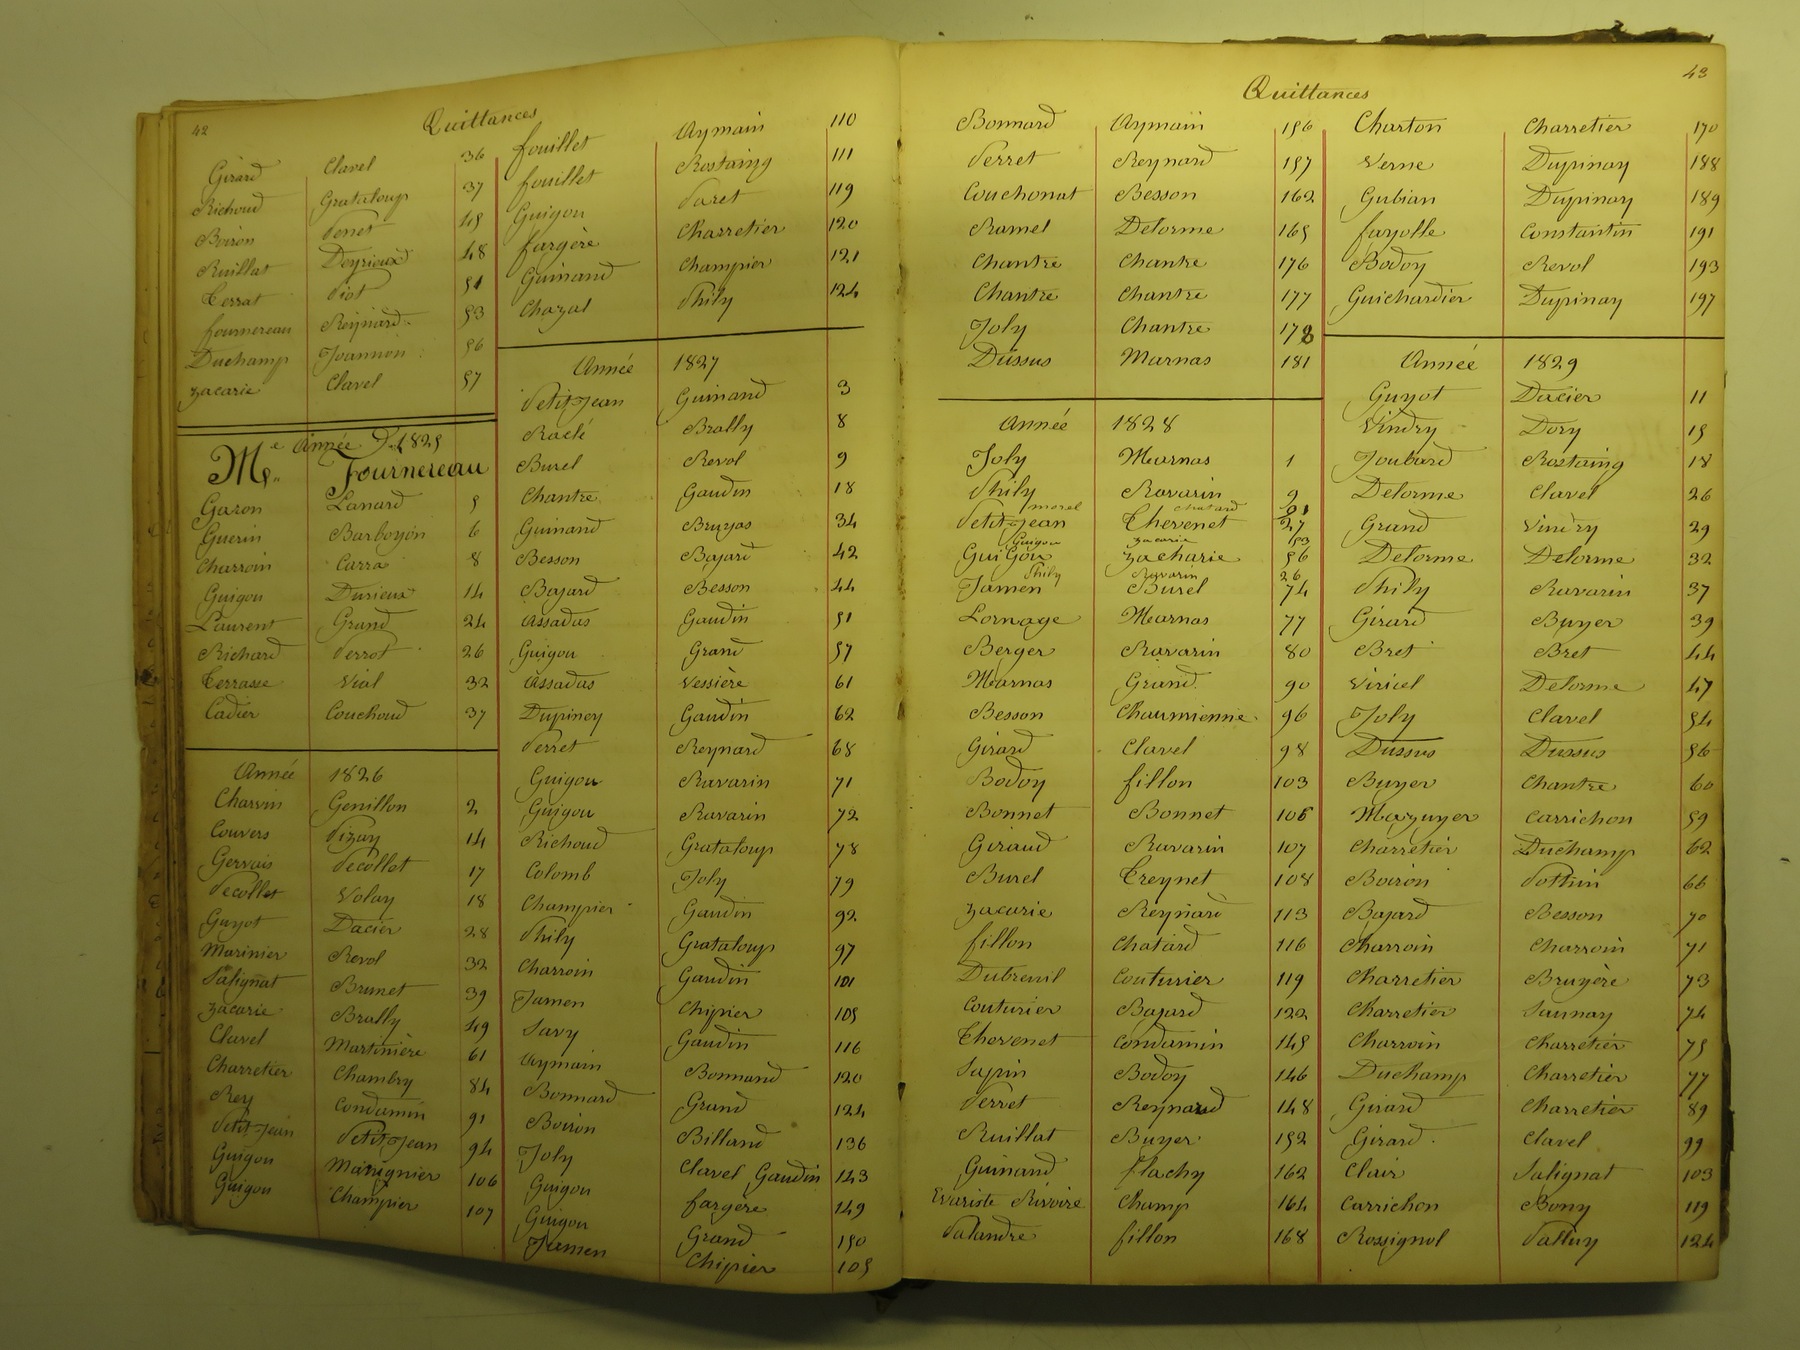 42
Quittances
Girard Clavel 36
Richoud Grataloup 37
Boiron Penet 45
Ruillat Deyrieux 48
Terrat Piot 51
fournereau Reynard 53
Duchamp Joannon 56
Zacarie Clavel 57
Année D. 1825
Me. Fournereau
Garon Lanard 5
Guerin Barboyon 6
Charroin Carra 8
Guigou Durieux 14
Laurent Grand 24
Richard Perrot 26
Terrasse Vial 32
Cadier Couchoud 37
Année 1826
Charvin Genillon 2
Couvers Pizay 14
Gervais Pecollet 17
Pecollet Volay 18
Guyot Dacier 28
Marinier Revol 32
Salignat Brunet 39
Zacarie Brally 49
Clavel Martinière 61
Charretier Chambry 84
Rey Condamin 91
Petit-Jean Petit-Jean 94
Guigou Marignier 106
Guigou Champier 107
fouillet Aymain 110
fouillet Rostaing 111
Guigou Paret 119
fargère Charretier 120
Guinand Champier 121
Chazal Phily 124
Année 1827
Petit-Jean Guinand 3
Raclé Brally 8
Burel Revol 9
Chantre Gaudin 18
Guinand Bruyas 34
Besson Bajard 42
Bajard Besson 44
Assadas Gaudin 51
Guigou Grand 57
Assadas Vessière 61
Dupiney Gaudin 62
Perret Reynard 68
Guigou Ravarin 71
Guigou Ravarin 72
Richoud Grataloup 78
Colomb Joly 79
Champier Gaudin 92
Phily Grataloup 97
Charroin Gaudin 101
Jamen Chipier 105
Savy Gaudin 116
Aymain Bonnand 120
Bonnard Grand 124
Boiron Billand 136
Joly Clavel Gaudin 143
Guigou fargère 149
Guigou Grand 150
Jamen Chipier 105
43
Quittances
Bonnard Aymain 156
Perret Reynard 157
Couchonat Besson 162
Ramel Delorme 165
Chantre Chantre 176
Chantre Chantre 177
Joly Chantre 178
Dussus Marnas 181
Année 1828
Joly Marnas 1
Phily Ravarin 2
morel chatard
Petit-Jean Thevenet 27
Guigou Zacarie 53
Guigou Zacharie 56
Phily Ravarin 26
Jamen Burel 74
Lornage Marnas 77
Berger Ravarin 80
Marnas Grand 90
Besson Chaumienne 96
Girard Clavel 98
Bodoy fillon 103
Bonnet Bonnet 106
Giraud Ravarin 107
Burel Treynet 108
Zacarie Reynard 113
fillon Chatard 116
Dubreuil Couturier 119
Couturier Bajard 122
Thevenet Condamin 145
Sapin Bodoy 146
Perret Reynard 148
Ruillat Buyer 152
Guinand flachy 162
Evariste Rivoire Champ 164
Palandre fillon 168
Charton Charretier 170
Verne Dupinay 188
Gubian Dupinay 189
fayolle Constantin 191
Bodoy Revol 193
Guichardier Dupinay 197
Année 1829
Guyot Dacier 11
Vindry Dory 15
Joubard Rostaing 18
Delorme Clavel 26
Grand Vindry 29
Delorme Delorme 32
Phily Ravarin 37
Girard Buyer 39
Bret Bret 44
Viricel Delorme 47
Joly Clavel 54
Dussus Dussus 56
Buyer Chantre 60
Mazuyer Carrichon 59
Charretier Duchamp 62
Boiron Pothin 66
Bajard Besson 70
Charroin Charroin 71
Charretier Bruyère 73
Charretier Saunay 74
Charroin Charretier 75
Duchamp Charretier 77
Girard Charretier 89
Girard Clavel 99
Clair Salignat 103
Carrichon Bony 119
Rossignol Palluy 124